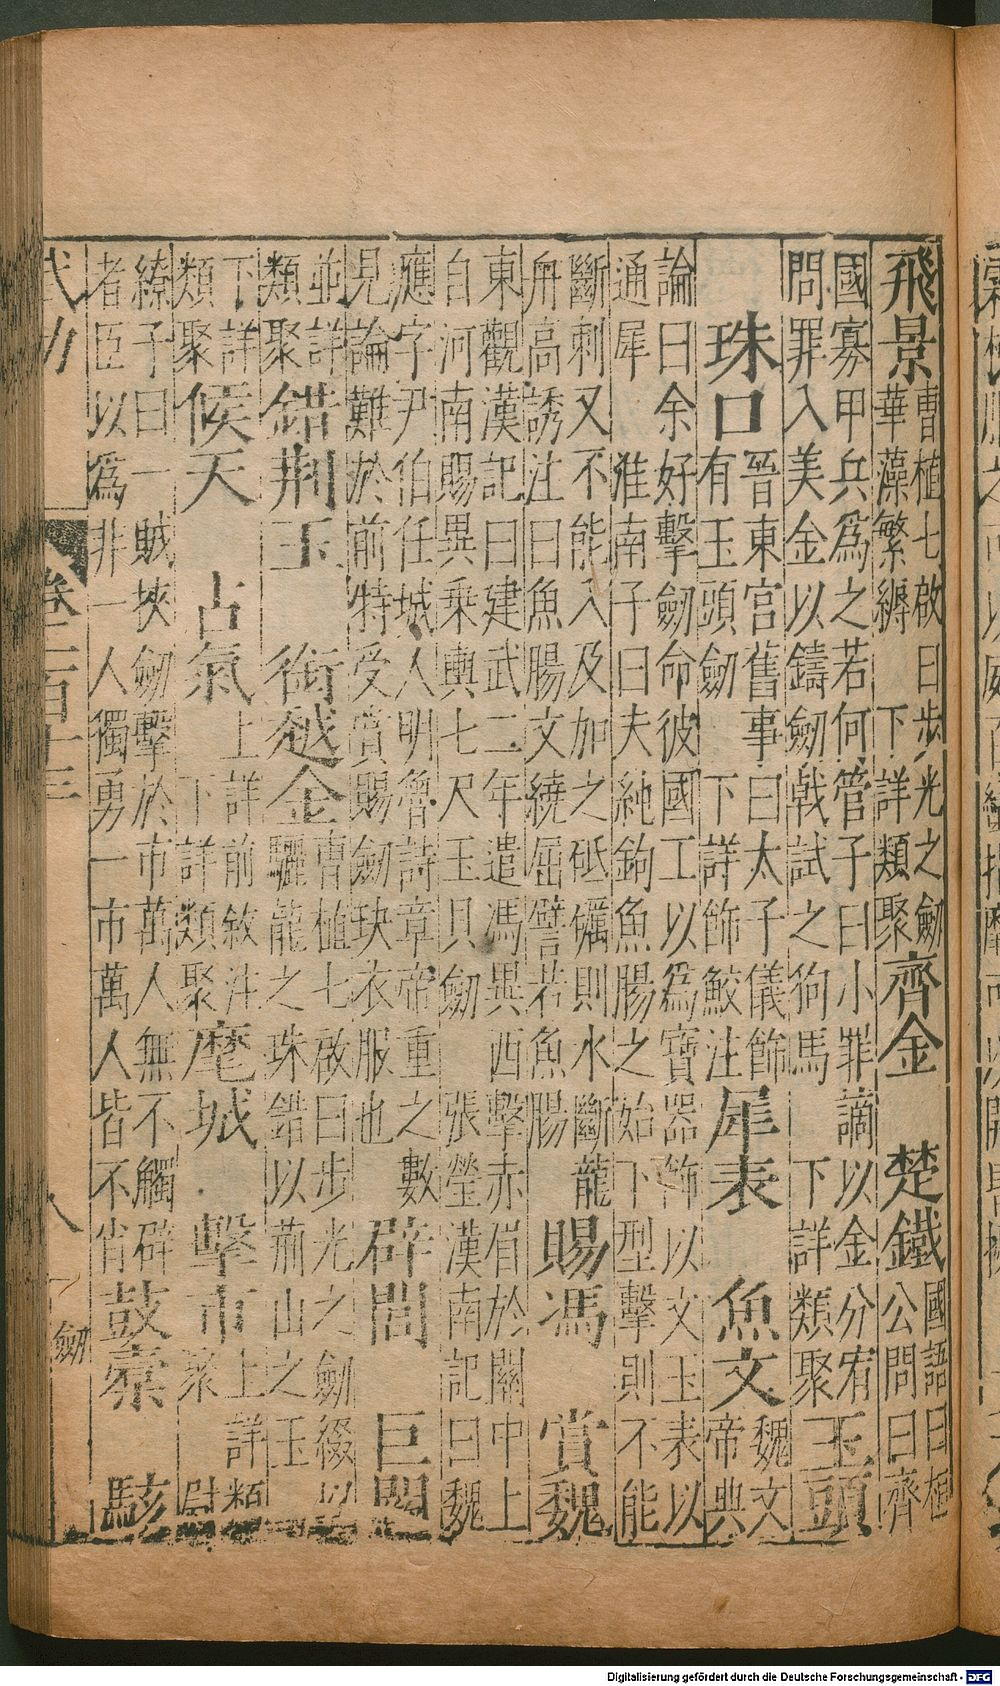 飛景
曹植七啟曰步光之劍
華藻繁縟 下詳類聚
齊金 楚鐵
國語曰桓
公問曰齊
國寡甲兵為之若何管子曰小罪謫以金分宥
問罪入美金以鑄劍戟試之狗馬 下詳類聚
玉頭
珠口
晉東宮舊事曰太子儀飾
有玉頭劍 下詳飾鮫注
犀表 魚文
魏文
帝典
論曰余好擊劍命彼國工以為寶器飾以文玉表以
通犀 淮南子曰夫純鉤魚腸之始下型擊則不能
斷刺又不能入及加之砥礪則水斷龍
舟高誘注曰魚腸文繞屈譬若魚腸
賜馮 賞魏
東觀漢記曰建武二年遣馮異西擊赤眉於關中上
自河南賜異乘輿七尺玉具劍 張瑩漢南記曰魏
應字尹伯任城人明魯詩章帝重之數
見論難於前特受賞賜劍玦衣服也
辟閭 巨闕
並詳
類聚
錯荊玉 銜越金
曹植七啟曰步光之劍綴以
驪龍之珠錯以荊山之玉
下詳
類聚
候天 占氣
上詳前敘注
下詳類聚
麾城 擊市
上詳類
聚 尉
繚子曰一賊挾劍擊於市萬人無不觸辟
者臣以為非一人獨勇一市萬人皆不肖
鼓橐 駭
武功 卷二百 八 劍